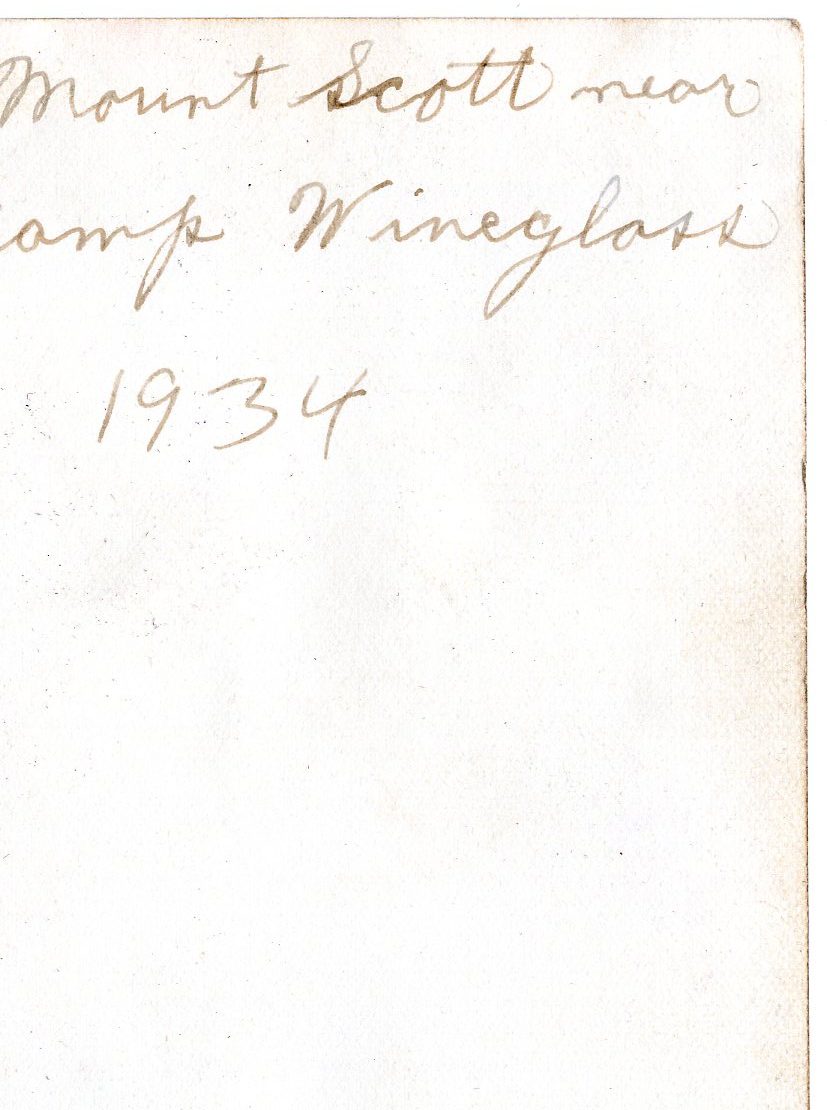 Mount Scott near
camp Wineglass
1934